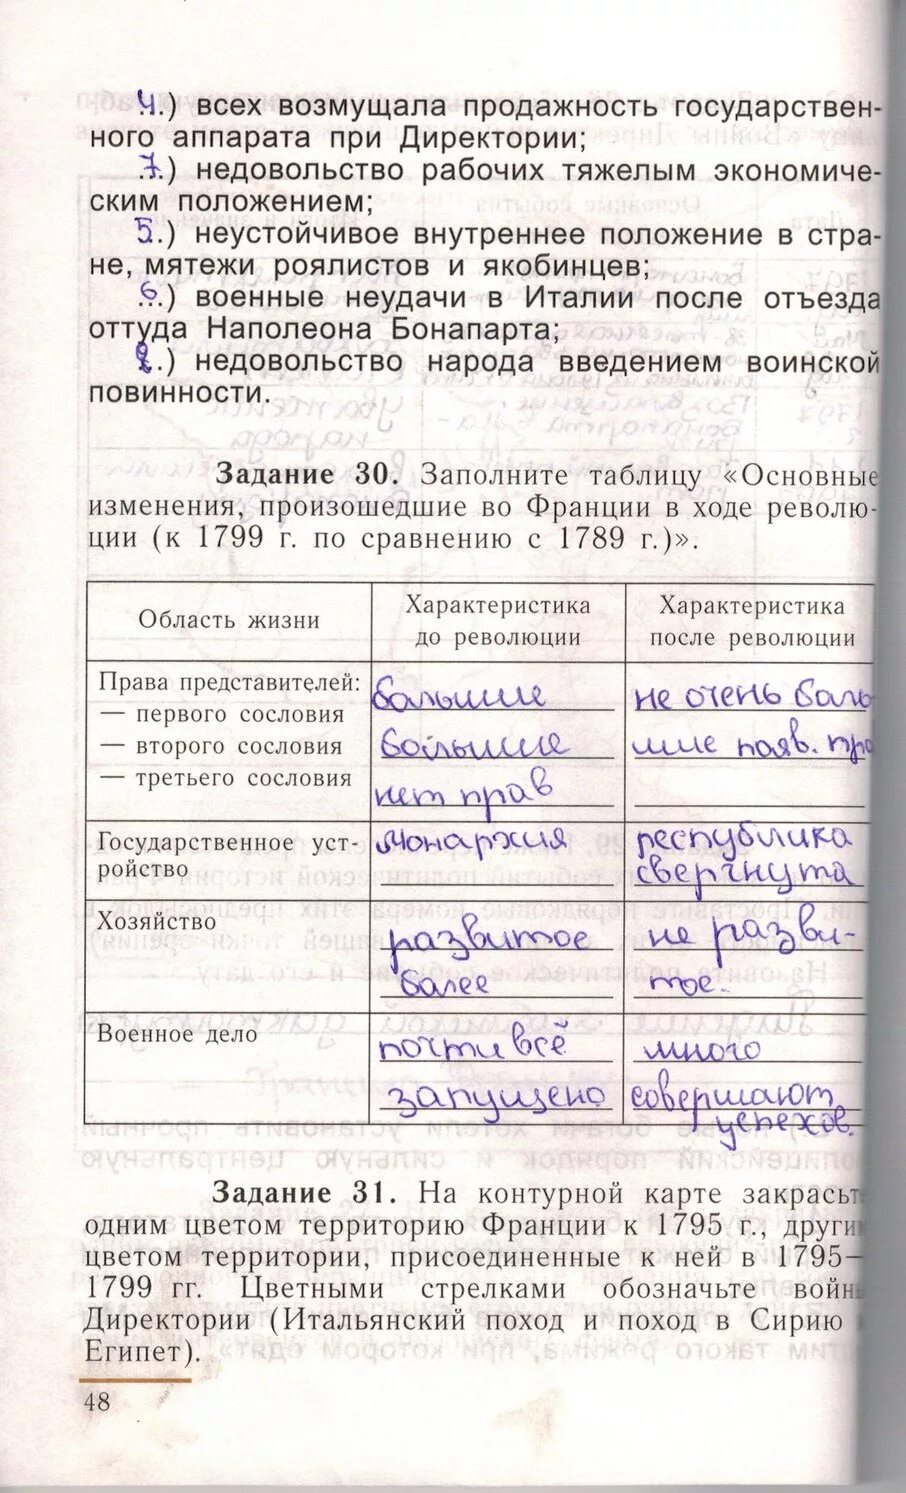 4.) всех возмущала продажность государствен-
ного аппарата при Директории;
7.) недовольство рабочих тяжелым экономиче-
ским положением;
5.) неустойчивое внутреннее положение в стра-
не, мятежи роялистов и якобинцев;
6.) военные неудачи в Италии после отъезда
оттуда Наполеона Бонапарта;
.) недовольство народа введением воинской
повинности.
Задание 30. Заполните таблицу «Основные
изменения, произошедшие во Франции в ходе револю-
ции (к 1799 г. по сравнению с 1789 г.)».
Область жизни
Характеристика
до революции
Характеристика
после революции
Права представителей:
— первого сословия
— второго сословия
— третьего сословия
большие
большие
нет прав
не очень боль
шие появ. пра
Государственное уст-
ройство
монархия
республика
свергнута
Хозяйство
развитое
более
не разви-
тое.
Военное дело
почти всё
запущено
много
совершают
успехов.
Задание 31. На контурной карте закрасьт
одним цветом территорию Франции к 1795 г., други
цветом территории, присоединенные к ней в 1795—
1799 гг. Цветными стрелками обозначьте войн
Директории (Итальянский поход и поход в Сирию
Египет).
48